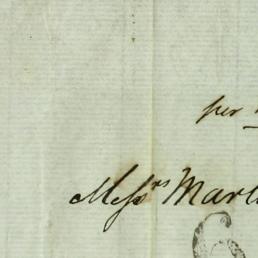 per
Messrs Mart